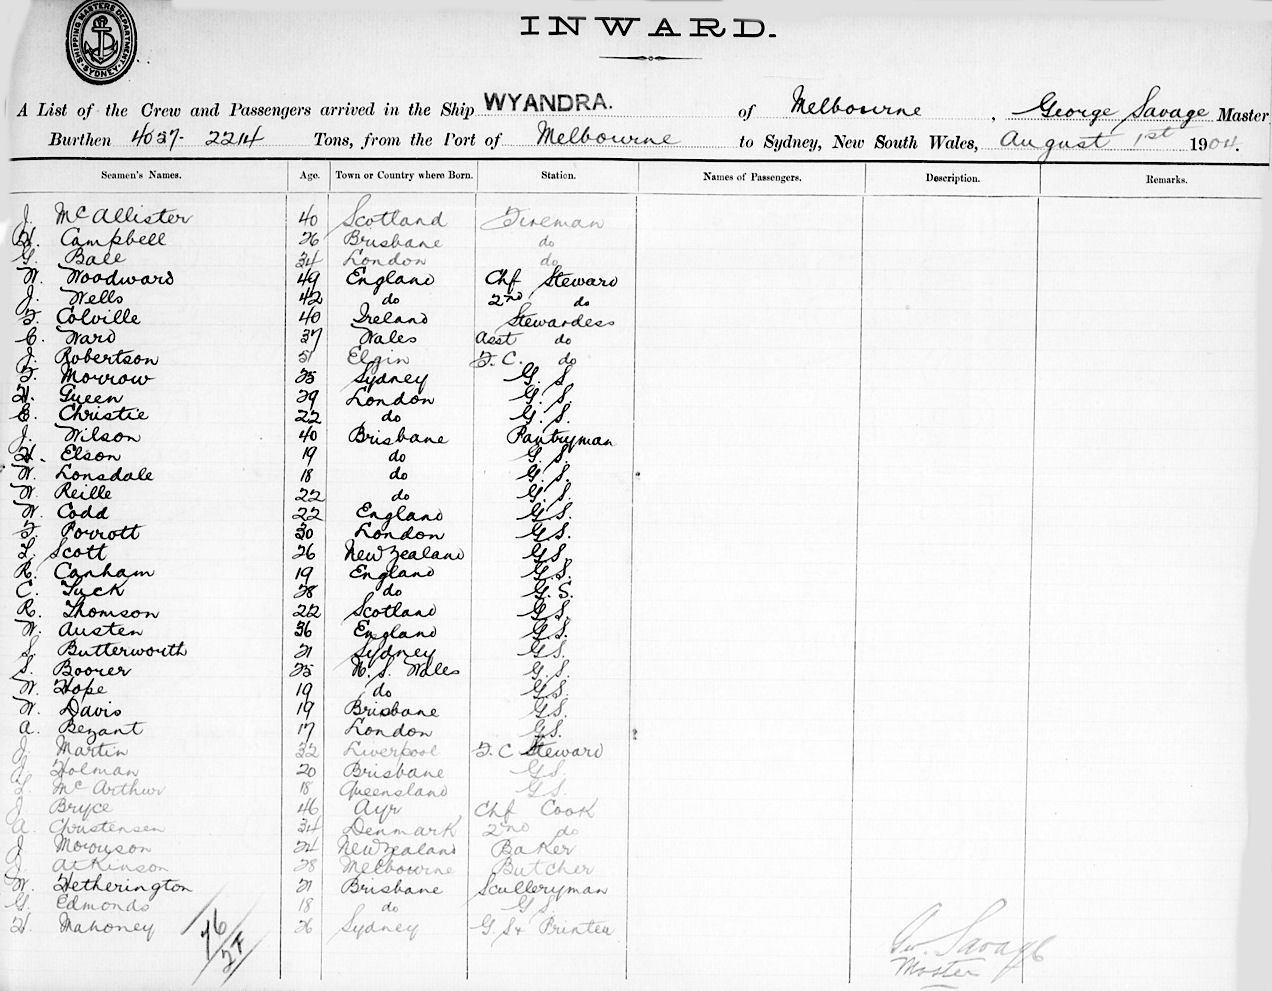 SHIPPING MASTERS DEPARTMENT. SYDNEY.
INWARD.
A List of the Crew and Passengers arrived in the Ship WYANDRA. of Melbourne, George Savage Master
Burthen 4037- 2214 Tons, from the Port of Melbourne to Sydney, New South Wales, August 1st 1904.
Seamen's Names. Age. Town or Country where Born. Station. Names of Passengers. Description. Remarks.
J. McAllister 40 Scotland Fireman
H. Campbell 26 Brisbane do
G. Ball 34 London do
W. Woodward 49 England Chf Steward
J. Wells 42 do 2nd do
F. Colville 40 Ireland Stewardess
C. Ward 37 Wales Asst do
J. Robertson Elgin F.C. do
F. Morrow 25 Sydney G.S
H. Green 29 London G.S.
E. Christie 22 do G.S.
J. Wilson 40 Brisbane Pantryman
H. Elson 19 do G.S.
W. Lonsdale 18 do G.S.
W. Reille 22 do G.S.
W. Codd 22 England G.S.
F. Porrott 30 London G.S.
L. Scott 26 New Zealand G.S.
R. Canham 19 England G.S.
C. Tuck 28 do G.S.
R. Thomson 22 Scotland G.S.
W. Austen 36 England G.S.
S. Butterworth 21 Sydney G.S.
S. Boorer 25 N.S. Wales G.S.
W. Hope 19 do G.S.
W. Davis 19 Brisbane G.S.
A. Bezant 17 London G.S.
J. Martin 32 Liverpool F.C Steward
Holman 20 Brisbane G.S.
McArthur 18 Queensland G.S.
J Bryce 46 Ayr Chf Cook
A. Christensen 34 Denmark 2nd do
J Morrison 24 New Zealand Baker
J Atkinson 28 Melbourne Butcher
W. Hetherington 21 Brisbane Sculleryman
G. Edmonds 18 do G.S.
H. Mahoney 26 Sydney G.S+ Printer
76
27
Geo. Savage
Master